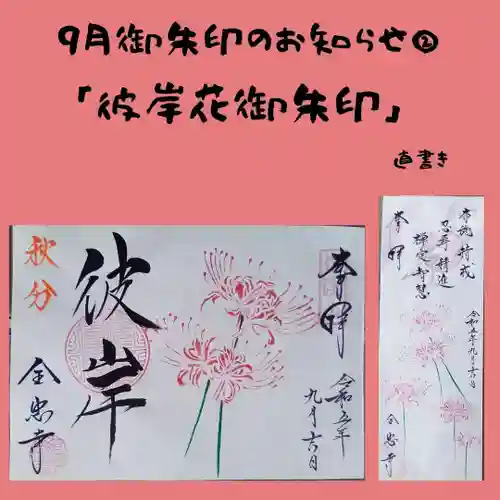 9月御朱印のお知らせ②
「彼岸花御朱印」
直書き
奉拝
令和五年
九月六日
彼岸
秋分
全忠寺
布施 持戒
忍辱 精進
禅定 智慧
奉拝
令和五年九月六日
全忠寺